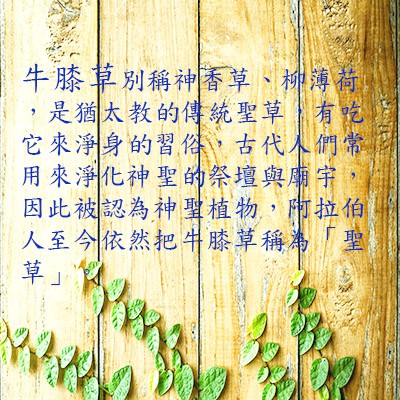 牛膝草別稱神香草、柳薄荷
，是猶太教的傳統聖草，有吃
它來淨身的習俗，古代人們常
用來淨化神聖的祭壇與廟宇，
因此被認為神聖植物，阿拉伯
人至今依然把牛膝草稱為「聖
草」。